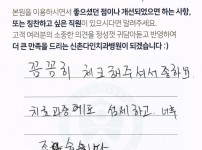 본원을 이용하시면서 좋았던 점이나 개선되었으면 하는 사항,
또는 칭찬하고 싶은 직원이 있으시다면 말해주세요.
고객 여러분의 소중한 의견을 정성껏 귀담아듣고 반영하여
더 큰 만족을 드리는 신촌다인치과병원이 되겠습니다 :)
꼼꼼히 체크해주셔서 좋았고
치료과정에도 섬세하고 너무
좋습니다